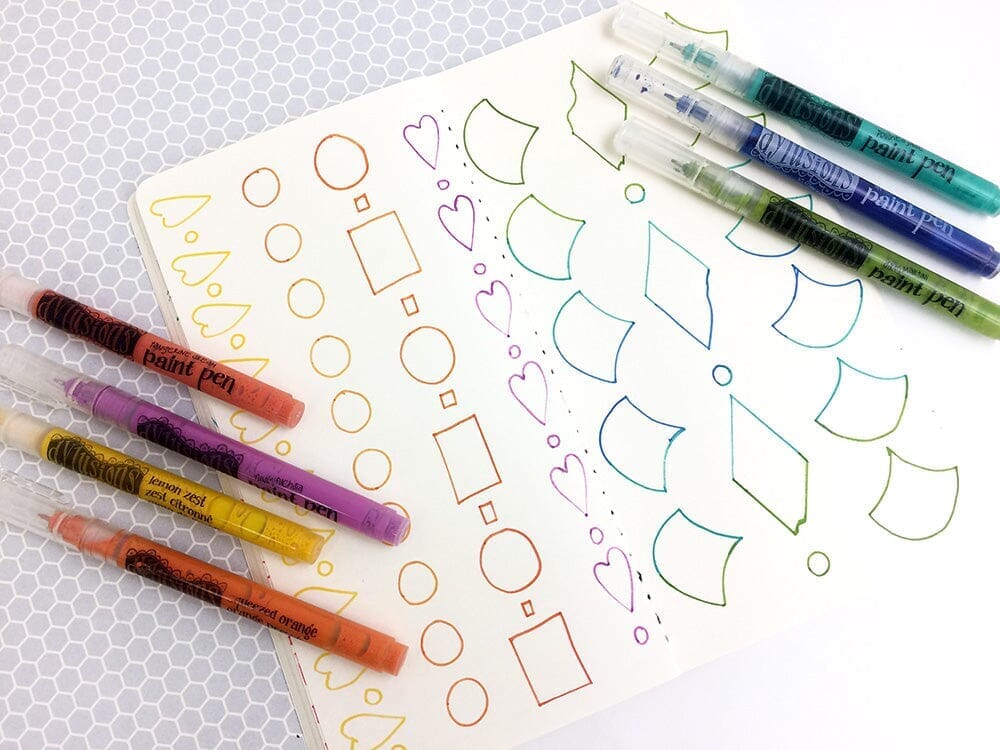 dylusions
paint pen
dylusions
paint pen
dylusions
paint pen
dylusions
tangerine dream
paint pen
dylusions
paint pen
dylusions
lemon zest
zest citronné
dylusions
squeezed orange